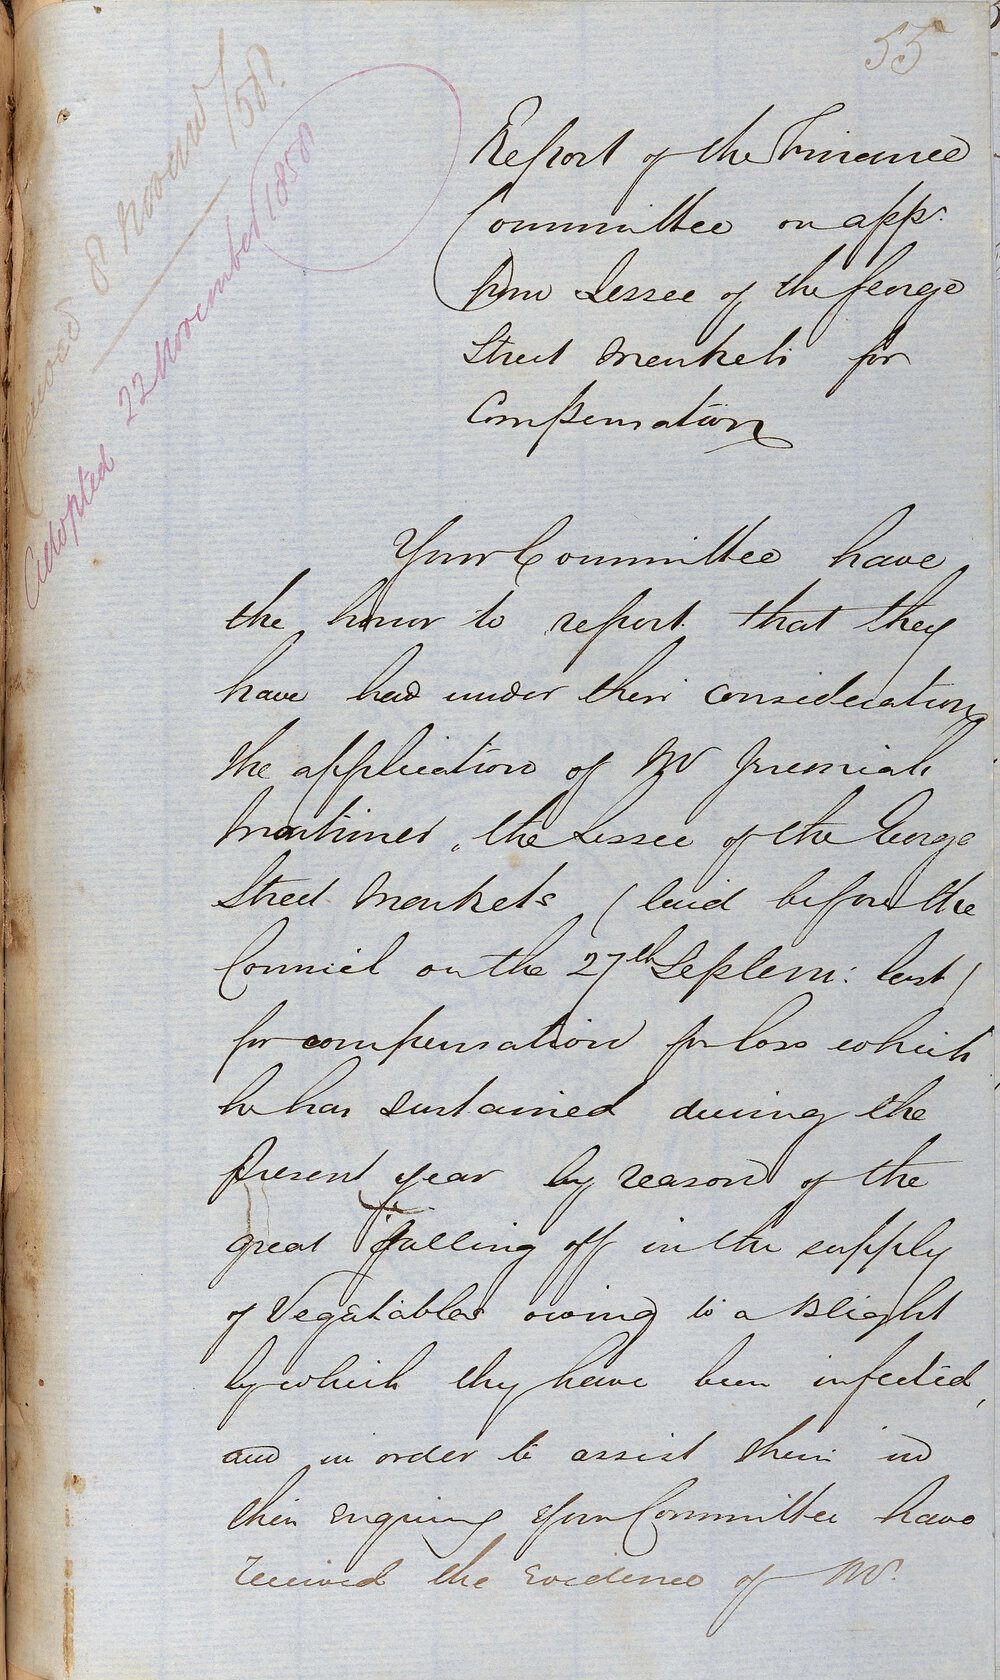 55
Received 8 Novemr/58.
Adopted 22 November 1858
Report of the Finance
Committee on app:
from Lessee of the George
Street Markets for
Compensation
Your Committee have
the honor to report that they
have had under their consideration
the application of Mr Jeremiah
Mortimer, the Lessee of the George
Street Markets (laid before the
Council on the 27th Septem: last)
for compensation for loss which
he has sustained during the
present year by reason of the
great falling off in the supply
of Vegatables owing to a Blight
by which they have been infected,
and in order to assist them in
their enquiry Your Committee have
received the Evidence of Mr